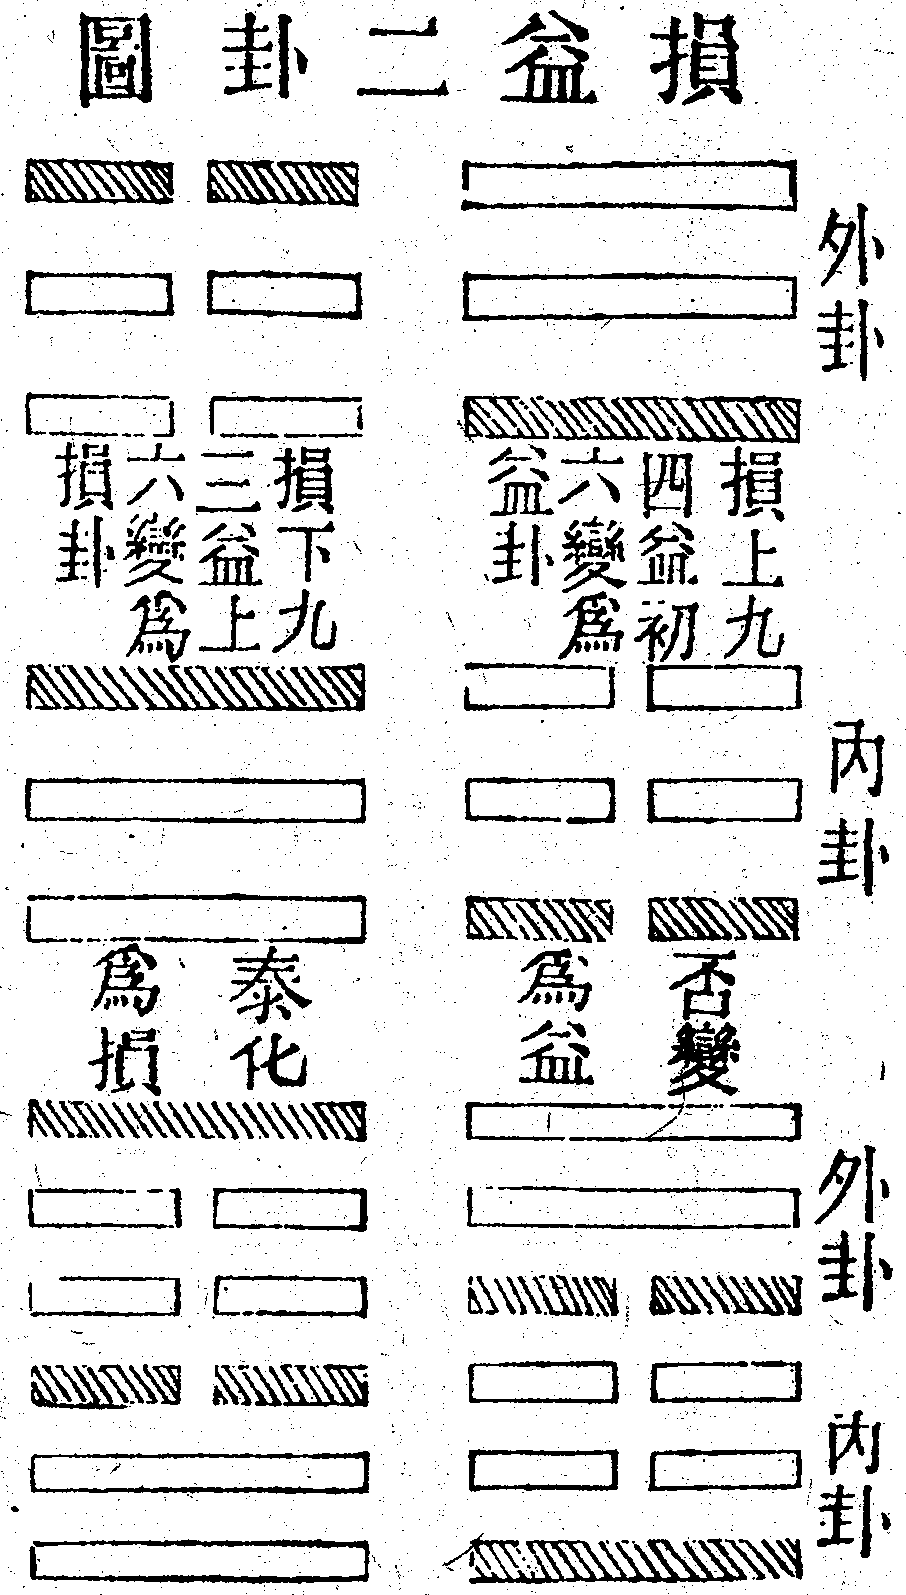 損益二卦圖
外卦
損上九
四益初
六變爲
益卦
損下九
三益上
六變爲
損卦
內卦
否變
爲益
泰化
爲損
外卦
內卦